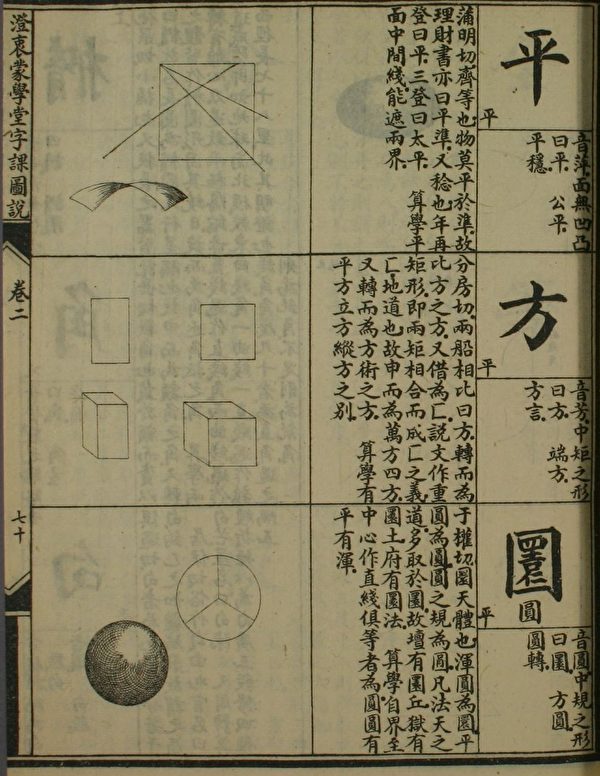 平
平
音萍.面無凹凸
曰平. 公平.
平穩.
蒲明切.齊等也.物莫平於準.故
理財書亦曰平準.又稔也.年再
登曰平.三登曰太平. 算學平
面中間綫能遮兩界.
方
平
音芳.中矩之形
曰方. 端方.
方言.
分房切.兩船相比曰方.轉而為
比方之方.又借為匚.説文作重
矩形.即兩矩相合而成匚之義
匚.地道也.故申而為萬方四方.
又轉而為方術之方. 算學有
平方立方縱方之別.
圜
圓
平
音圓.中規之形
曰圜. 方圓.
圓轉.
于權切.圜天體也.渾圓為圜.平
圓為圓.圓之規為圓.凡法天之
道.多取於圜.故壇有圜丘.獄有
圜土.府有圜法. 算學自界至
中心作直綫俱等者為圓.圓有
平有渾.
澄衷蒙學堂字課圖說
卷二
七十